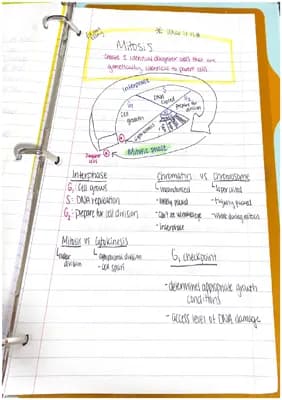 Mitosis
Create 2 identical daughter cells that are
genetically identical to parent cell
Interphase
G1
Cell
growth
S
DNA
copied
G2
prepare for
division
cytokinesis
Mitotic phase
Interphase
G1: Cell grows
S: DNA replication
G2: Prepare for cell division
Chromatin vs Chromosome
- uncondensed
- loosely packed
- Interphase
- supercoiled
- tightly packed
- visible during mitosis
Mitosis vs Cytokinesis
nuclear
division
cytoplasmic division
- cell splits
G1 checkpoint
- determines appropriate growth
conditions
- access level of DNA damage